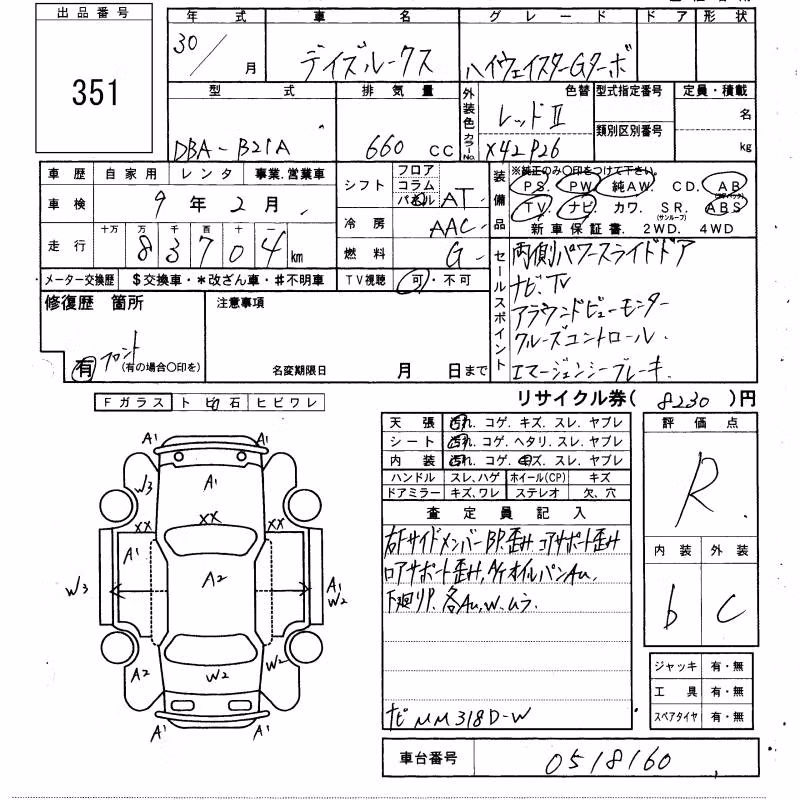 出品番号
351
年 式 車 名 グレード ドア 形 状
30/ 月 デイズルークス ハイウェイスターGターボ
型 式 排 気 量 外装色 カラーNo. 色替 型式指定番号 定員・積載
DBA-B21A 660 CC レッドⅡ X42P26 類別区別番号 名 kg
車 歴 自 家 用 レ ン タ 事業.営業車
車 検 9 年 2 月
走 行 十万 万 千 百 十 一 83704 km
メーター交換歴 $交換車・*改ざん車・#不明車
シフト フロア コラム パネル AT
冷 房 AAC
燃 料 G
TV視聴 可・不可
装備品 ※純正のみ〇印をつけて下さい。
PS. PW 純AW. CD. AB (エアバック)
TV. ナビ カワ. SR. (サンルーフ) ABS
新車保証書. 2WD. 4WD
セールスポイント 両側パワースライドドア
ナビ.TV
アラウンドビューモニター
クルーズコントロール.
エマージェンシーブレーキ.
修復歴 箇所
有 フロント (有の場合〇印を)
注意事項
名変期限日 月 日まで
リサイクル券( 8230 )円
Fガラス トビ石 ヒビワレ
天 張 汚れ. コゲ. キズ. スレ. ヤブレ
シート 汚れ. コゲ. ヘタリ. スレ. ヤブレ
内 装 汚れ. コゲ. キズ. スレ. ヤブレ
ハンドル スレ、ハゲ ホイール(CP) キズ
ドアミラー キズ、ワレ ステレオ 欠、穴
評 価 点
R
内 装 外 装
b C
査 定 員 記 入
右Fサイドメンバー BP.歪み.コアサポート歪み
ロアサポート歪み. オイルパンAu.
下廻りP. 各Au,W.ムラ.
ナビ MM318D-W
ジャッキ 有・無
工 具 有・無
スペアタイヤ 有・無
車台番号 0518160
A1 A1
A1
W3
XX XX XX
A1
A2
W3 A1 W2
A2 W2 W2
A1 A1